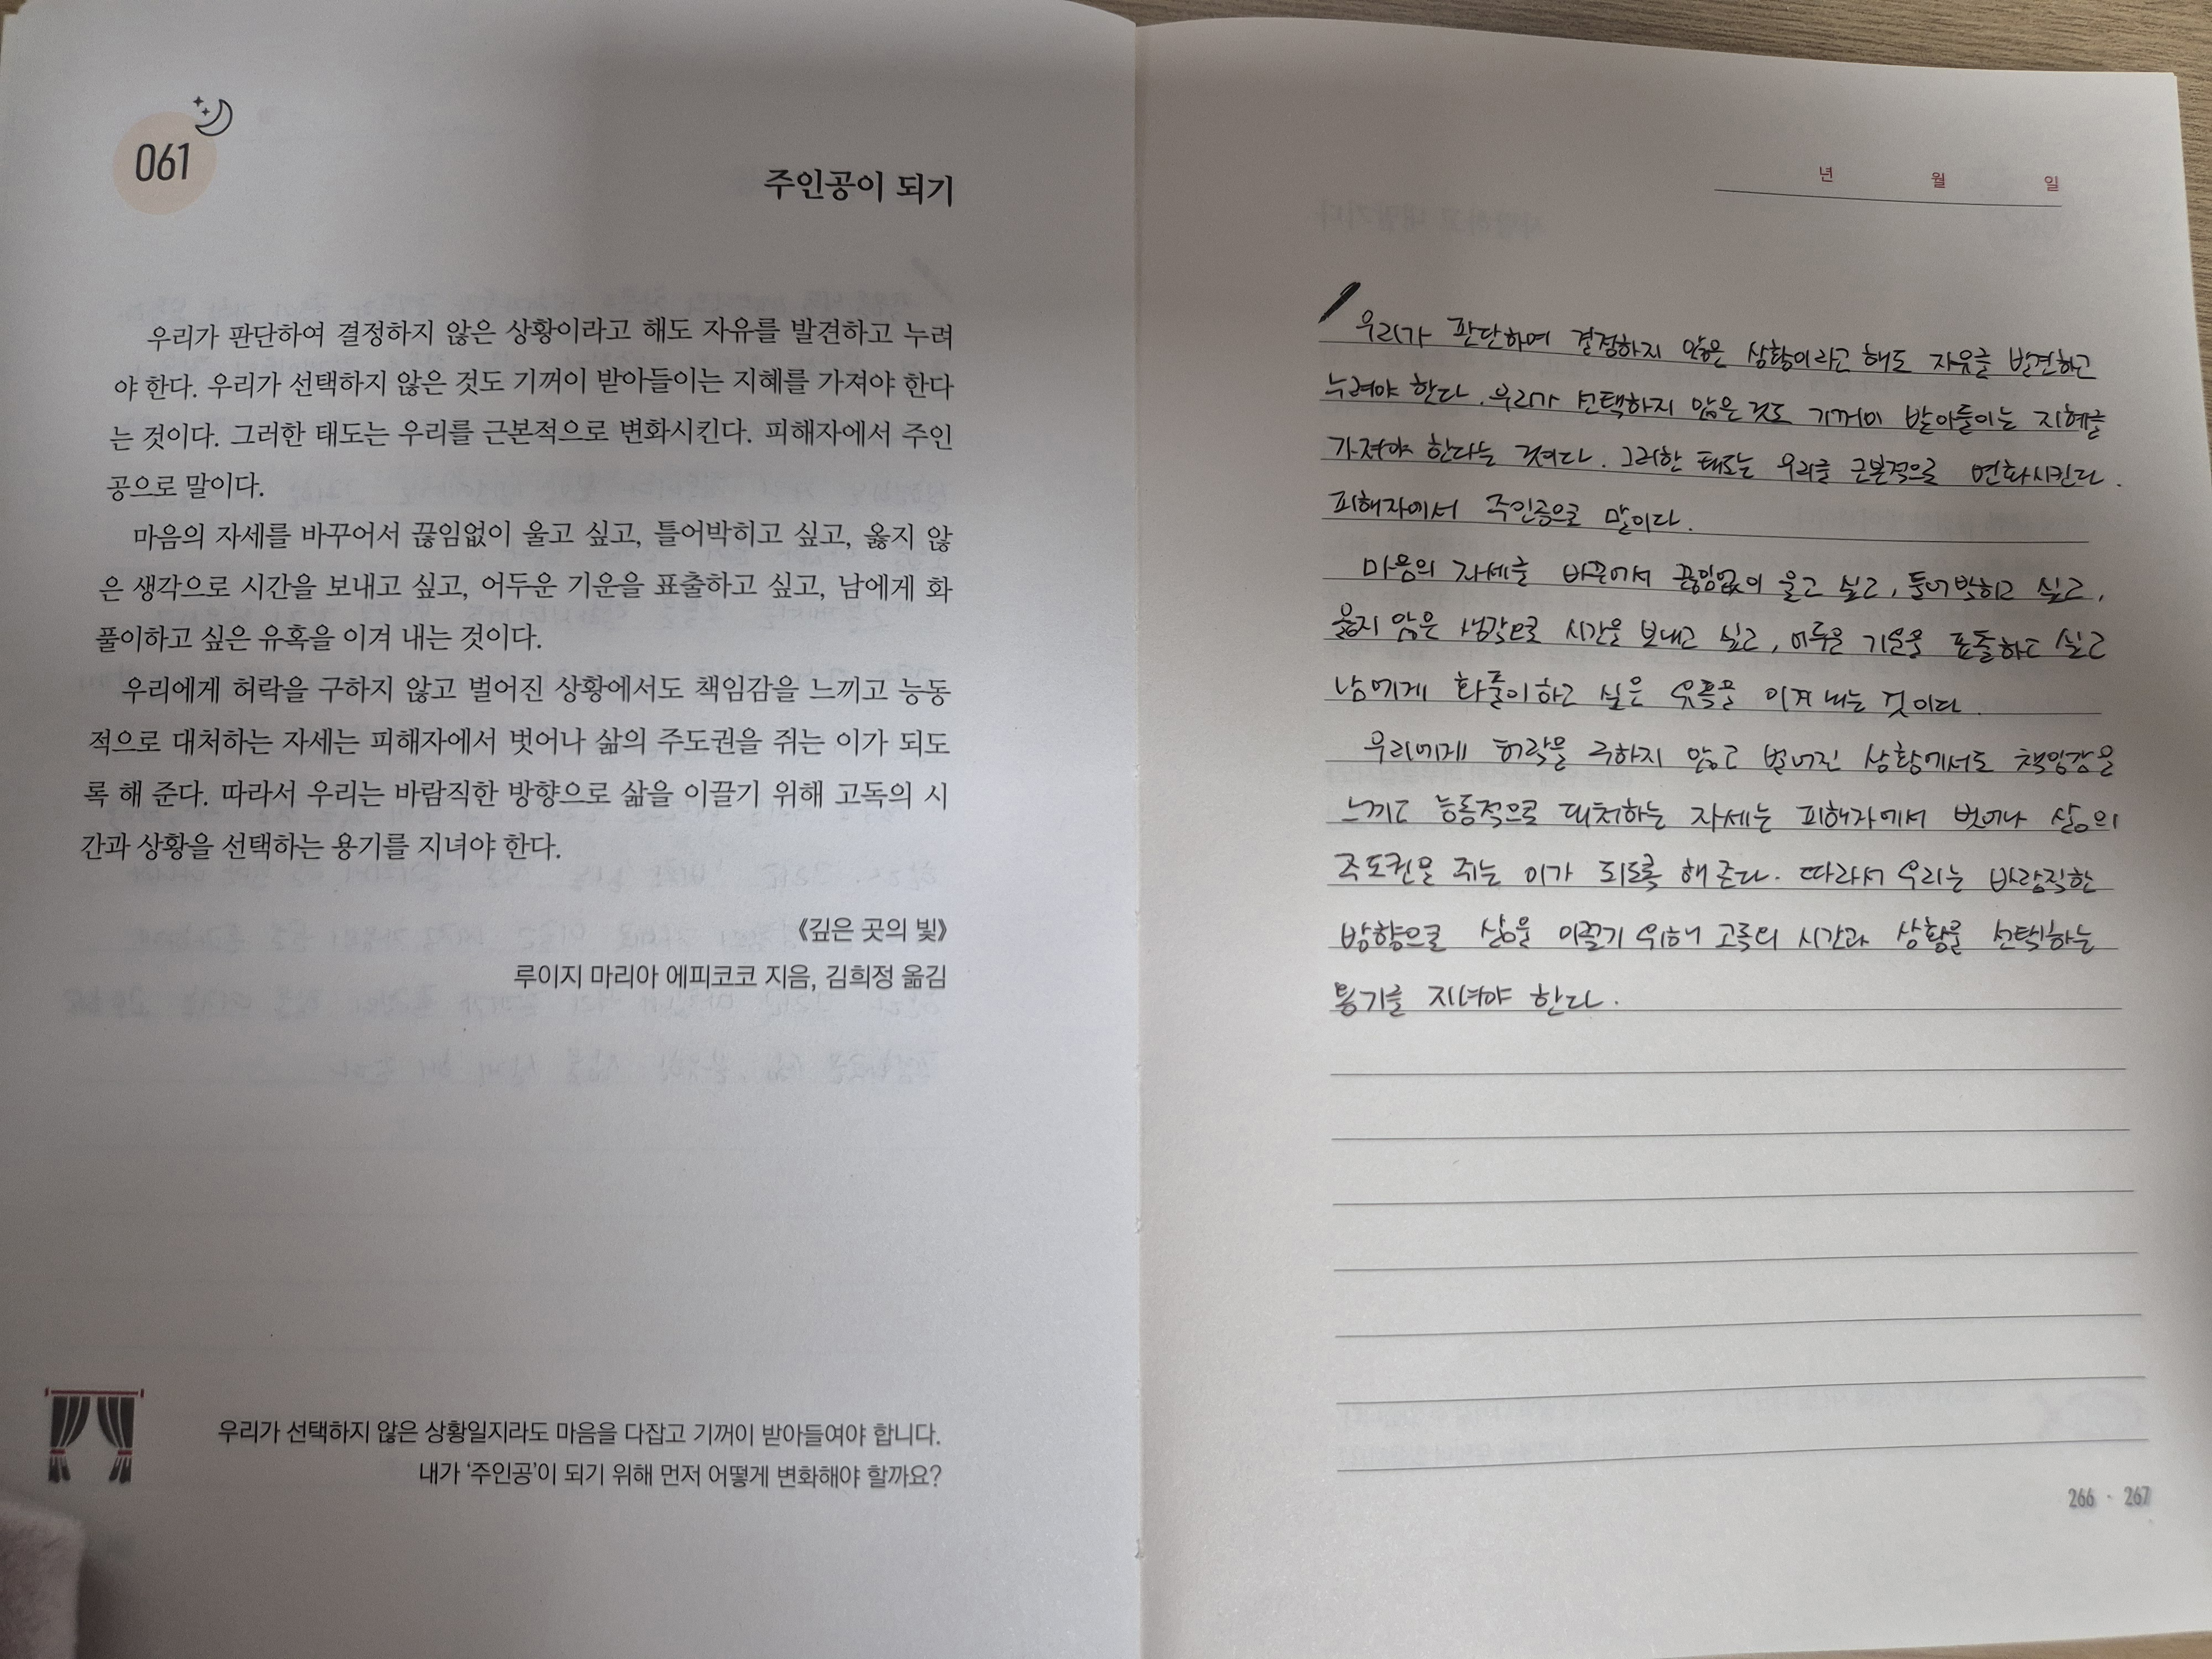 061
주인공이 되기
우리가 판단하여 결정하지 않은 상황이라고 해도 자유를 발견하고 누려
야 한다. 우리가 선택하지 않은 것도 기꺼이 받아들이는 지혜를 가져야 한다
는 것이다. 그러한 태도는 우리를 근본적으로 변화시킨다. 피해자에서 주인
공으로 말이다.
마음의 자세를 바꾸어서 끊임없이 울고 싶고, 틀어박히고 싶고, 옳지 않
은 생각으로 시간을 보내고 싶고, 어두운 기운을 표출하고 싶고, 남에게 화
풀이하고 싶은 유혹을 이겨 내는 것이다.
우리에게 허락을 구하지 않고 벌어진 상황에서도 책임감을 느끼고 능동
적으로 대처하는 자세는 피해자에서 벗어나 삶의 주도권을 쥐는 이가 되도
록 해 준다. 따라서 우리는 바람직한 방향으로 삶을 이끌기 위해 고독의 시
간과 상황을 선택하는 용기를 지녀야 한다.
《깊은 곳의 빛》
루이지 마리아 에피코코 지음, 김희정 옮김
우리가 선택하지 않은 상황일지라도 마음을 다잡고 기꺼이 받아들여야 합니다.
내가 ‘주인공’이 되기 위해 먼저 어떻게 변화해야 할까요?
년 월 일
우리가 판단하여 결정하지 않은 상황이라고 해도 자유를 발견하고
누려야 한다. 우리가 선택하지 않은 것도 기꺼이 받아들이는 지혜를
가져야 한다는 것이다. 그러한 태도는 우리를 근본적으로 변화시킨다.
피해자에서 주인공으로 말이다.
마음의 자세를 바꾸어서 끊임없이 울고 싶고, 틀어박히고 싶고,
옳지 않은 생각으로 시간을 보내고 싶고, 어두운 기운을 표출하고 싶고
남에게 화풀이하고 싶은 유혹을 이겨 내는 것이다.
우리에게 허락을 구하지 않고 벌어진 상황에서도 책임감을
느끼고 능동적으로 대처하는 자세는 피해자에서 벗어나 삶의
주도권을 쥐는 이가 되도록 해 준다. 따라서 우리는 바람직한
방향으로 삶을 이끌기 위해 고독의 시간과 상황을 선택하는
용기를 지녀야 한다.
266 · 267